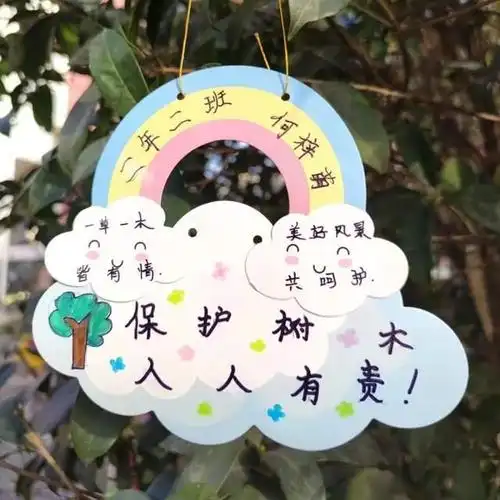 二年二班 何梓萌
一草一木
皆有情.
美好风景
共呵护.
保护树木
人人有责!